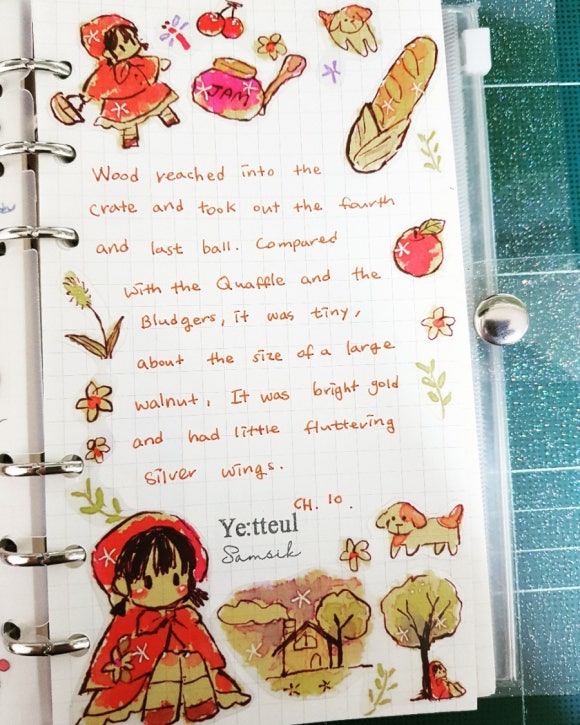 JAM
Wood reached into the
crate and took out the fourth
and last ball. Compared
with the Quaffle and the
Bludgers, it was tiny,
about the size of a large
walnut. It was bright gold
and had little fluttering
silver wings.
CH. 10.
Ye:tteul
Samsik